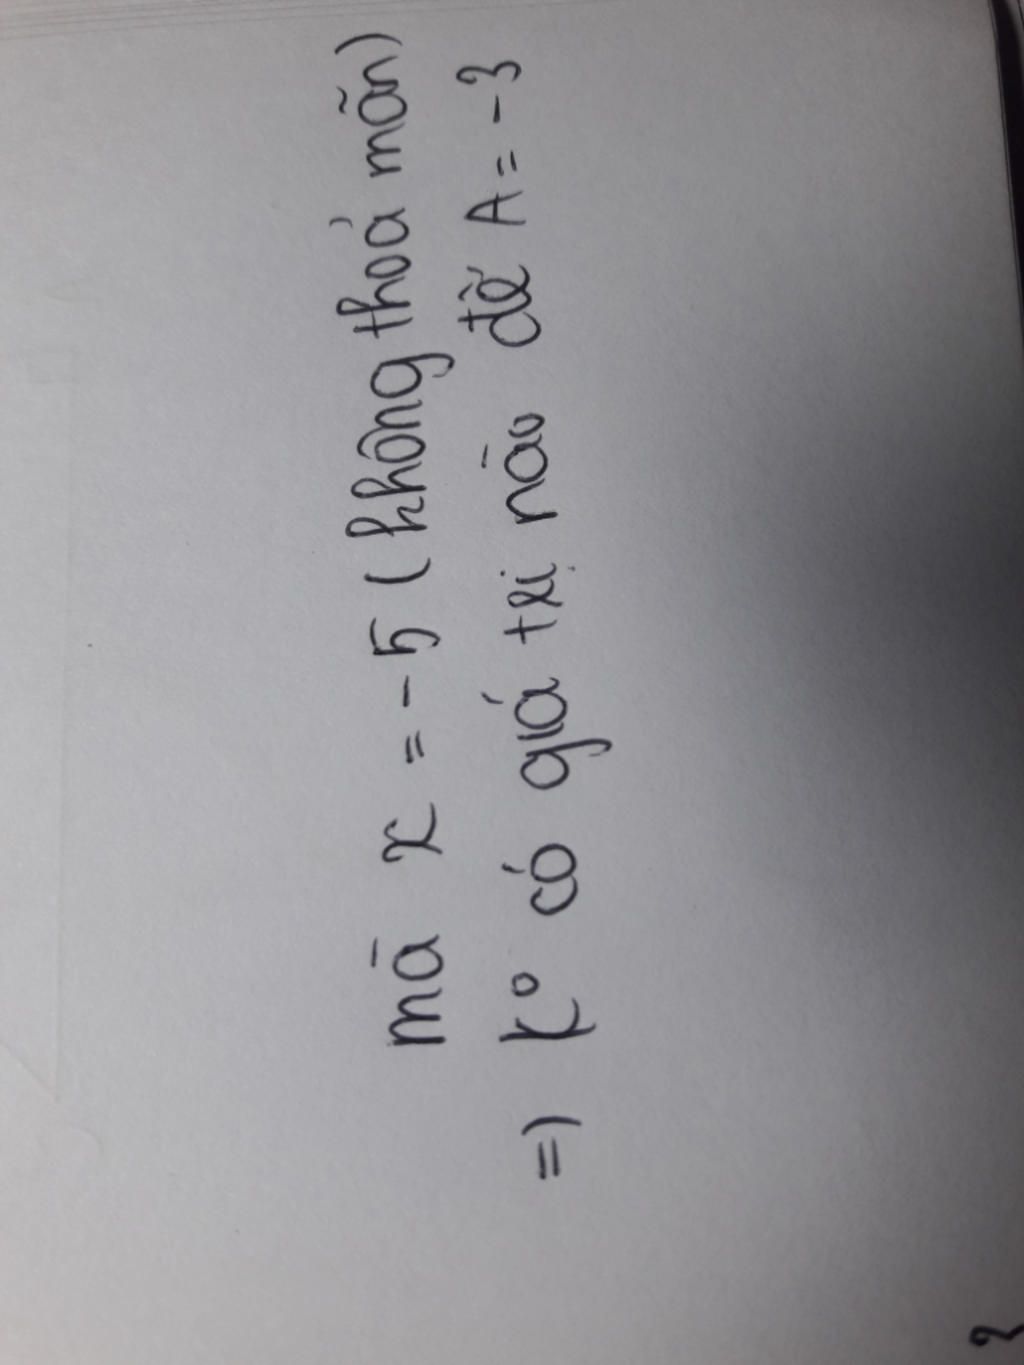 mà x = -5 (không thoả mãn)
=) K° có giá trị nào để A = -3